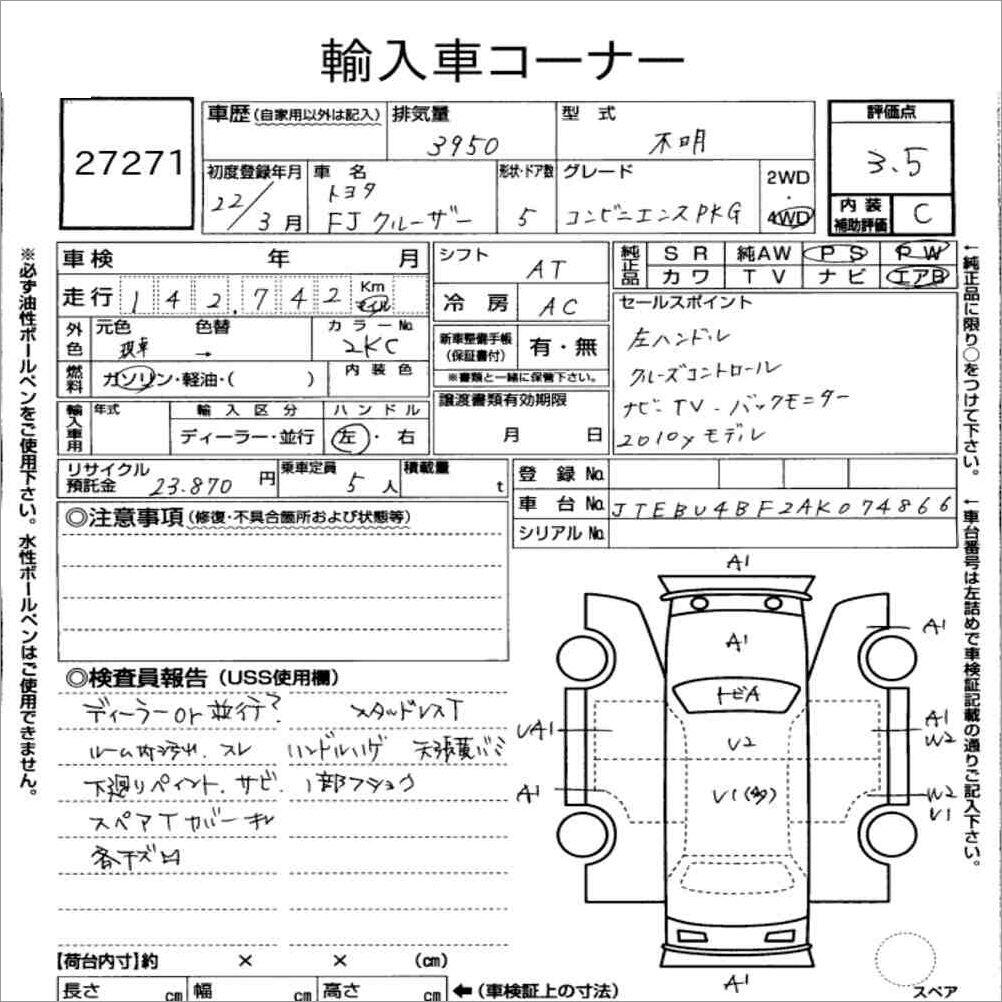 輸入車コーナー
27271
車歴(自家用以外は記入) 排気量 3950 型式 不明 評価点 3.5
初度登録年月 22/3月 車名 トヨタ FJクルーザー 形状・ドア数 5 グレード コンビニエンスPKG 2WD・4WD 内装補助評価 C
車検 年 月 シフト AT 純正品 SR 純AW PS PW
走行 142,742 Km マイル 冷房 AC カワ TV ナビ エアB
外色 元色 現車 色替 → カラーNo. 2KC 新車整備手帳(保証書付) 有・無 セールスポイント
※書類と一緒に保管下さい。
左ハンドル
燃料 ガソリン・軽油・( ) 内装色
クルーズコントロール
譲渡書類有効期限 月 日
ナビ・TV・バックモニター
2010yモデル
輸入車用 年式 輸入区分 ディーラー・並行 ハンドル 左・右
リサイクル預託金 23.870円 乗車定員 5人 積載量 t 登録No.
車台No. JTEBU4BF2AK074866
シリアルNo.
◎注意事項(修復・不具合箇所および状態等)
◎検査員報告(USS使用欄)
ディーラーor並行? スタッドレスT
ルーム内汚れ、スレ ハンドルハゲ 天張黄バミ
下廻りペイント、サビ、1部フショク
スペアTカバーキレ
各下ズロ
A1
A1
A1
トビA
UA1
U2
A1
W2
A1
U1(多)
W2
U1
A1
スペア
【荷台内寸】約 × × (cm)
長さ cm 幅 cm 高さ cm ←(車検証上の寸法)
※必ず油性ボールペンをご使用下さい。水性ボールペンはご使用できません。
←純正品に限り○をつけて下さい。
←車台番号は左詰めで車検証記載の通りご記入下さい。